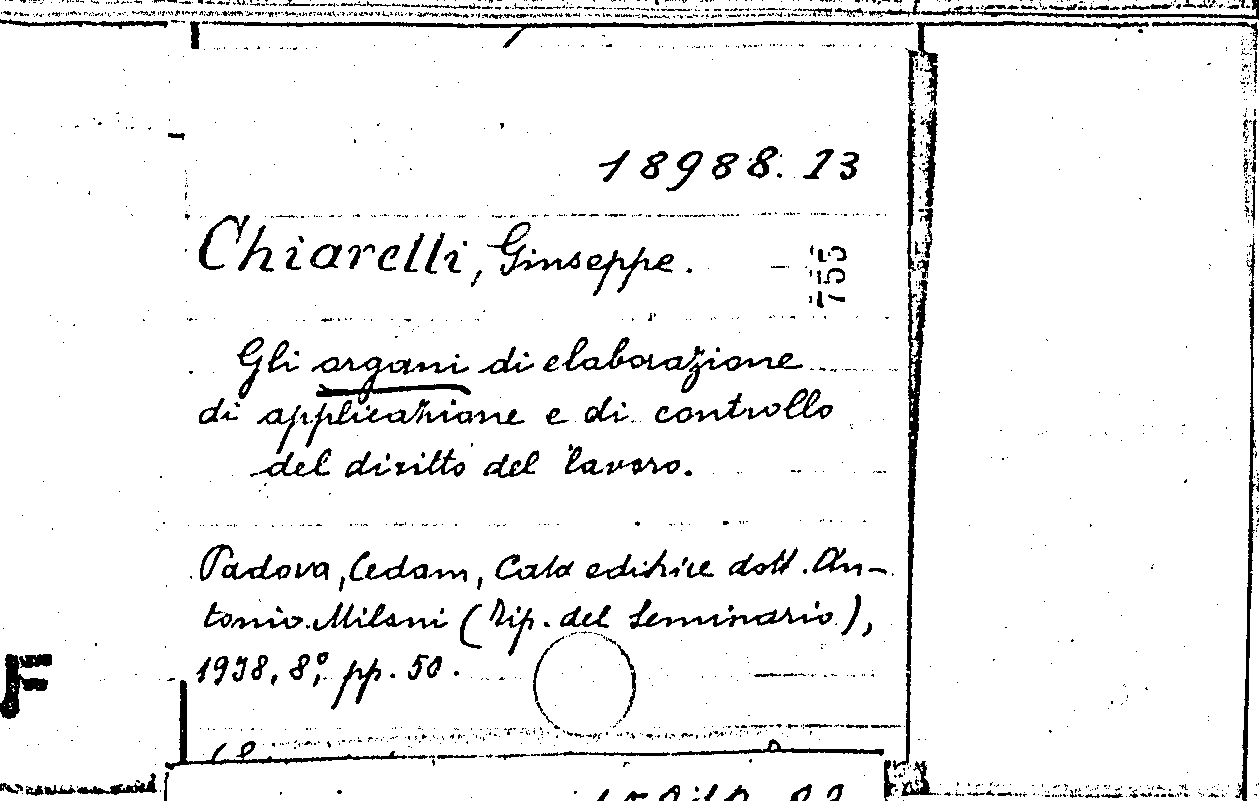 18988. 23
Chiarelli, Giuseppe.
755
Gli organi di elaborazione
di applicazione e di controllo
del diritto del lavoro.
Padova, Cedam, Casa editrice dott. An-
tonio Milani (Tip. del Seminario),
1938, 8°, pp. 50.